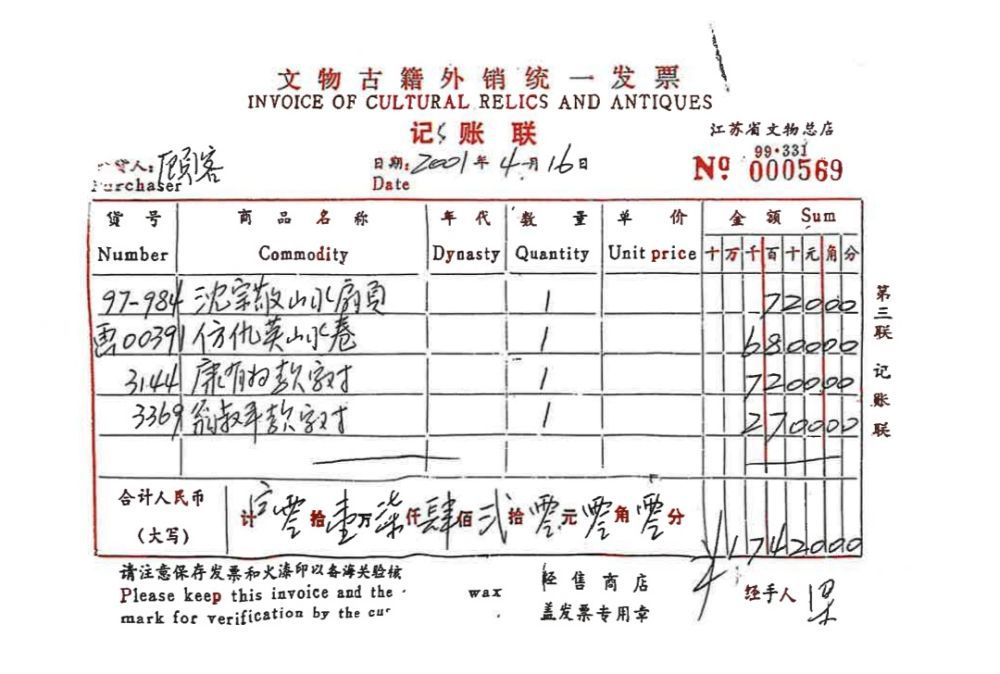 文物古籍外销统一发票
INVOICE OF CULTURAL RELICS AND ANTIQUES
记账联
江苏省文物总店
货人: 顾客
Purchaser
日期: 2001年4月16日
Date
99·331
Nº 000569
货号 商品名称 年代 数量 单价 金额 Sum
Number Commodity Dynasty Quantity Unit price 十 万 千 百 十 元 角 分
97-984 沈宗敬山水扇页 1 72000
00391 仿仇英山水卷 1 680000
3144 康有为款字对 1 720000
3369 翁叔平款字对 1 270000
合计人民币
(大写)
计 零拾壹万柒仟肆佰贰拾零元零角零分 ¥1742000
第三联 记账联
请注意保存发票和火漆印以备海关验核
Please keep this invoice and the wax
mark for verification by the cus
经售商店
盖发票专用章
经手人 梁